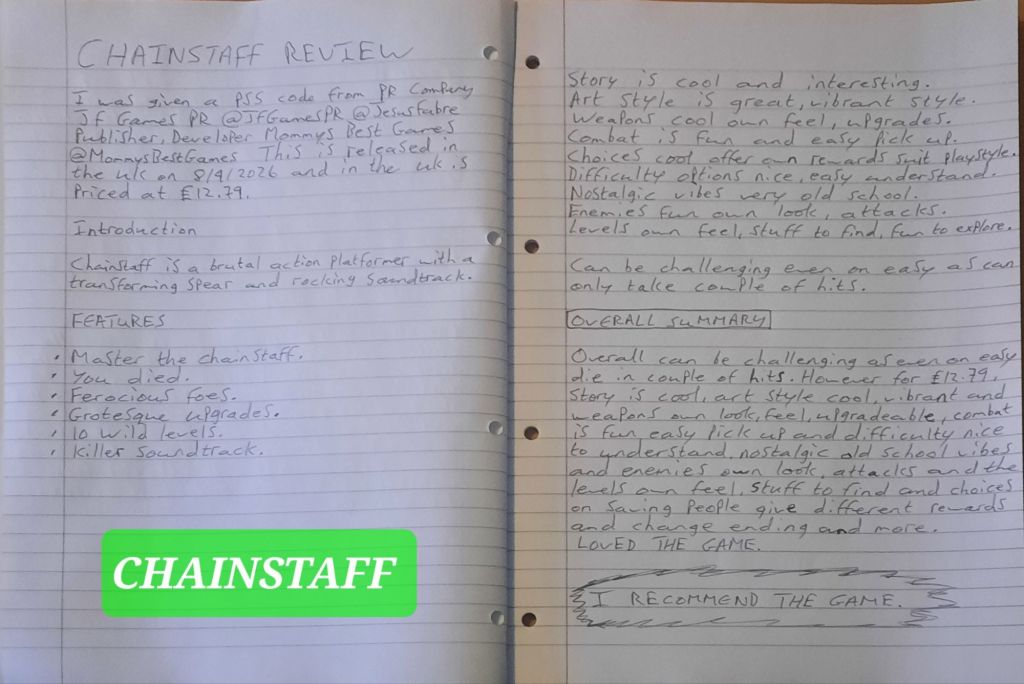 CHAINSTAFF REVIEW
I was given a PS5 code from PR Company
Jf Games PR @JfGamesPR @JesusFabre
Publisher, Developer Mommys Best Games
@MommysBestGames This is released in
the uk on 8/4/2026 and in the uk is
Priced at £12.79.
Introduction
Chainstaff is a brutal action platformer with a
transforming spear and rocking soundtrack.
FEATURES
• Master the chainstaff.
• You died.
• Ferocious foes.
• Grotesque upgrades.
• 10 wild levels.
• Killer soundtrack.
CHAINSTAFF
Story is cool and interesting.
Art style is great, vibrant style.
Weapons cool own feel, upgrades.
Combat is fun and easy pick up.
Choices cool offer own rewards suit playstyle.
Difficulty options nice, easy understand.
Nostalgic vibes very old school.
Enemies fun own look, attacks.
Levels own feel, stuff to find, fun to explore.
Can be challenging even on easy as can
only take couple of hits.
OVERALL SUMMARY
Overall can be challenging as even on easy
die in couple of hits. However for £12.79,
Story is cool, art style cool, vibrant and
weapons own look, feel, upgradeable, combat
is fun easy pick up and difficulty nice
to understand, nostalgic old school vibes
and enemies own look, attacks and the
levels own feel, stuff to find and choices
on saving people give different rewards
and change ending and more.
LOVED THE GAME.
I RECOMMEND THE GAME.